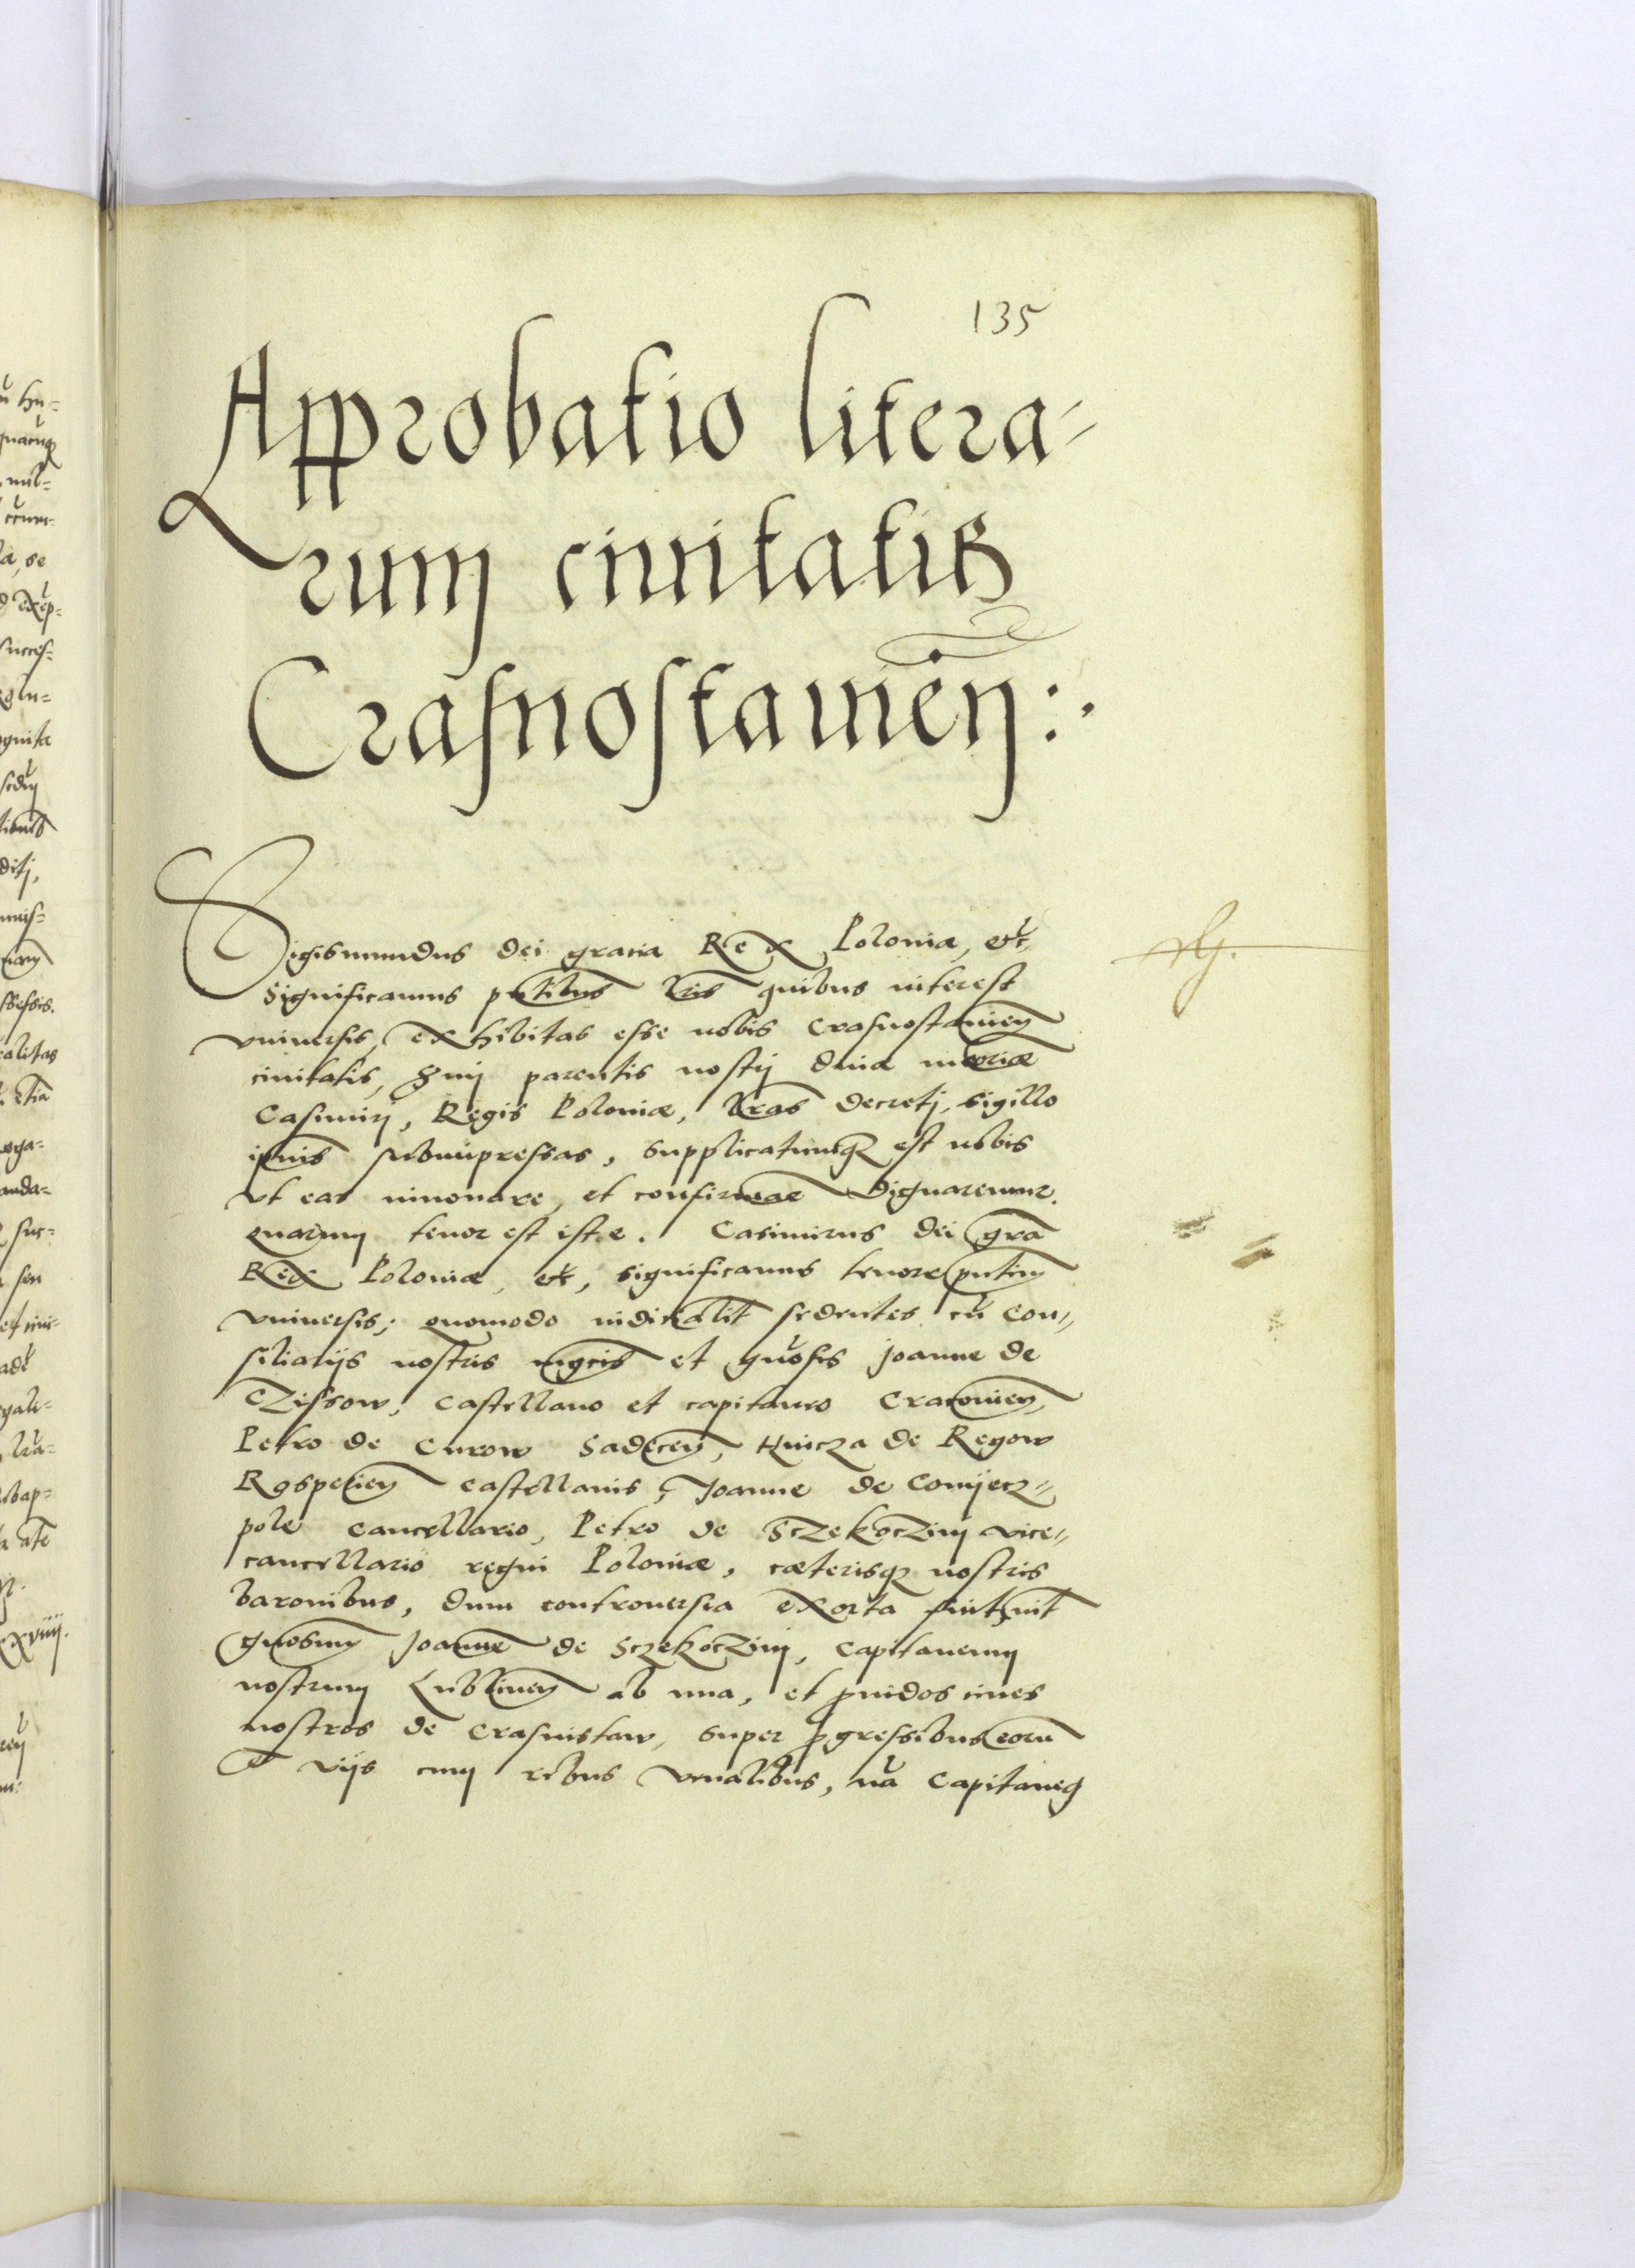 135
Approbatio litera-
rum ciuitatis
Crasnostauień:.
Sigismundus dei gracia Rex Poloniæ, etc̃
Significamus pn̄tibus lr̄is quibus interest
vniuersis, exhibitas esse nobis Crasnostauień
ciuitatis, parentis nostrj diuæ meoriæ
Casimirj, Regis Poloniæ, lr̄as decretj, sigillo
ip̄ius subimpressas, supplicatumq₃ est nobis
vt eas innouare, et confirmare dignaremur.
quarum tenor est iste. Casimirus dei gr̄a
Rex Poloniæ, etc̃, significamus tenore pn̄tium
vniuersis; quomodo iudicialit̄ sedentes cū Con„
siliarijs nostris mgcis et gn̄osis Joanne de
Czissow, Castellano et capitaneo Cracouień,
Petro de Curow Sadeceń, Hincza de Rogow
Rospeŕień castellanis, Joanne de Coniecz„
pole cancellario, Petro de Sczekoczini vice„
cancellario regni Poloniæ, cæterisq₃ nostris
baronibus, dum controuersia exorta fuit int̄
gn̄osum Joannē de Sczekoczini, Capitaneum
nostrum Lublineń ab vna, et ꝓuidos ciues
nostros de Crasnistaw, super ꝓgressibus eorū
et vijs cum rebus venalibus, nā Capitaneꝰ